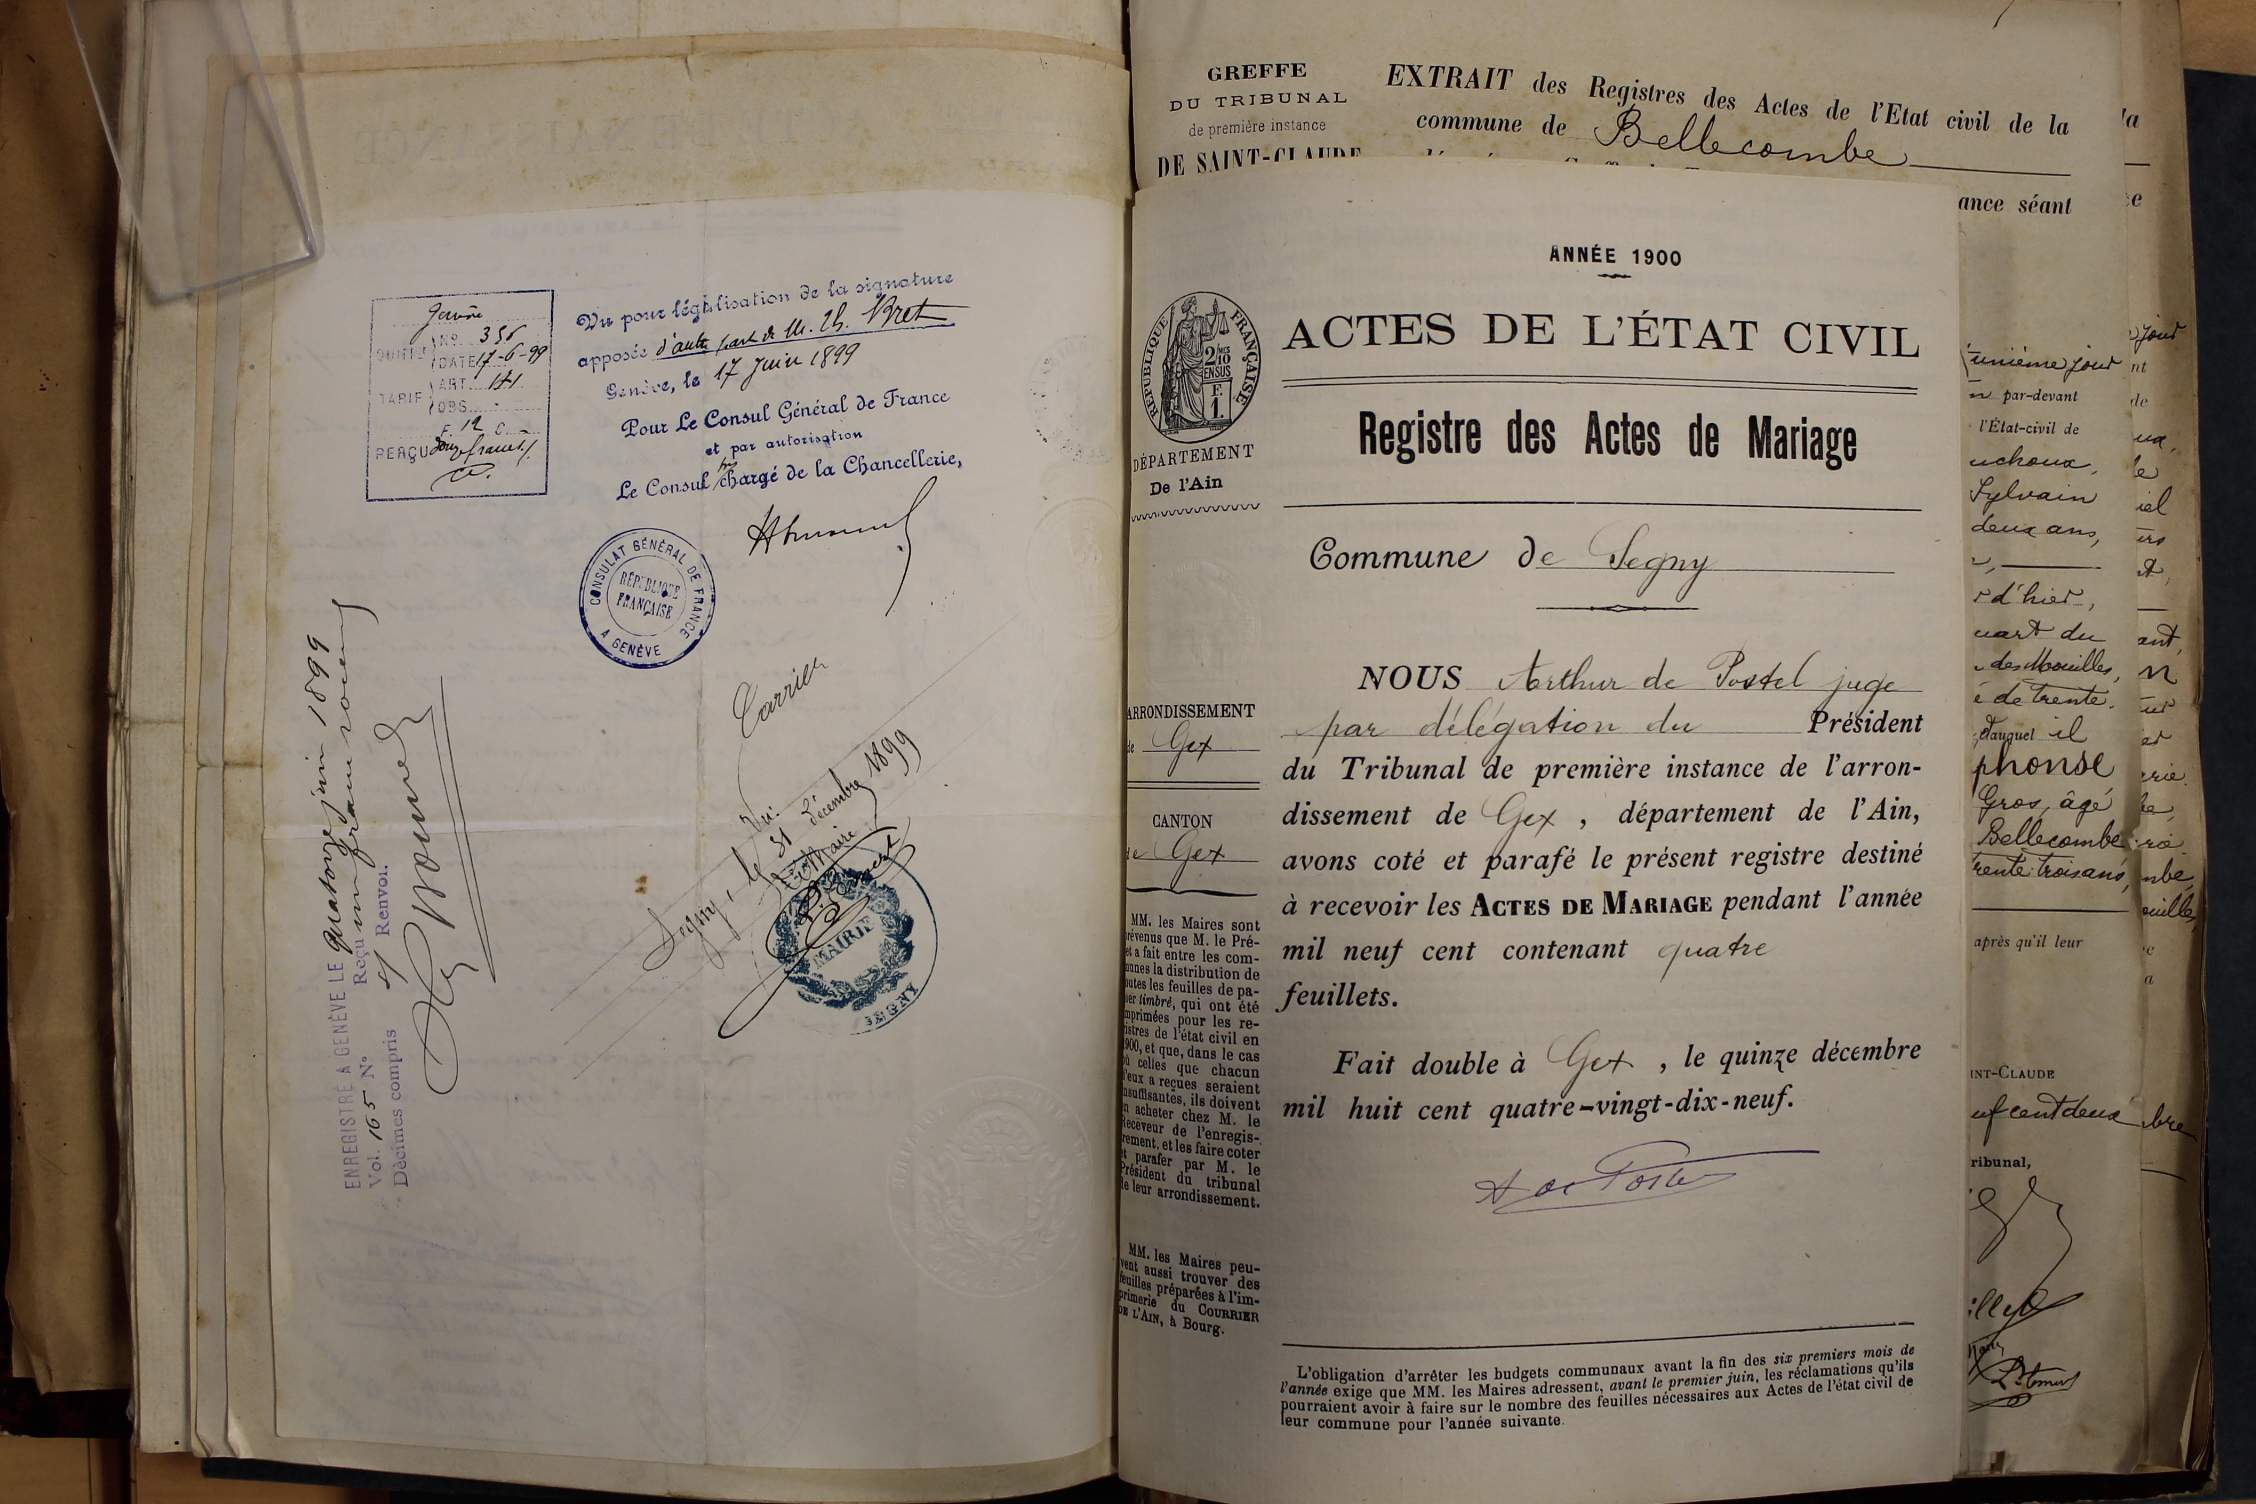 Genève
QUITTCE Nº 356
DATE 17-6-99
TARIF ART. 141
OBS.
F. 12 C. -
PERÇU Douze francs
Vu pour légalisation de la signature
apposée d'autre part de M. Ch. Bret
Genève, le 17 Juin 1899
Pour Le Consul Général de France
et par autorisation
Le Consul chargé de la Chancellerie,
CONSULAT GÉNÉRAL DE FRANCE
A GENÈVE
RÉPUBLIQUE
FRANÇAISE
ENREGISTRÉ A GENÈVE LE quatorze juin 1899
Vol. 165 Nº Reçu un franc
Décimes compris Renvoi.
Carrier
Vu:
Segny, le 31 décembre 1899
Le Maire
MAIRIE
SEGNY
GREFFE
DU TRIBUNAL
de première instance
DE SAINT-CLAUDE
EXTRAIT des Registres des Actes de l'Etat civil de la
commune de Bellecombe
ance séant
ANNÉE 1900
RÉPUBLIQUE FRANÇAISE
2/10mes
EN SUS
F.
1.
DÉPARTEMENT
De l'Ain
ACTES DE L'ÉTAT CIVIL
Registre des Actes de Mariage
Commune de Segny
ARRONDISSEMENT
de Gex
CANTON
de Gex
NOUS Arthur de Postel juge
par délégation du Président
du Tribunal de première instance de l'arron-
dissement de Gex, département de l'Ain,
avons coté et parafé le présent registre destiné
à recevoir les ACTES DE MARIAGE pendant l'année
mil neuf cent contenant quatre
feuillets.
Fait double à Gex, le quinze décembre
mil huit cent quatre-vingt-dix-neuf.
A de Postel
MM. les Maires sont
prévenus que M. le Pré-
fet a fait entre les com-
munes la distribution de
toutes les feuilles de pa-
pier timbré, qui ont été
imprimées pour les re-
gistres de l'état civil en
1900, et que, dans le cas
où celles que chacun
d'eux a reçues seraient
insuffisantes, ils doivent
en acheter chez M. le
Receveur de l'enregis-
trement, et les faire coter
et parafer par M. le
Président du tribunal
de leur arrondissement.
MM. les Maires peu-
vent aussi trouver des
feuilles préparées à l'im-
primerie du COURRIER
DE L'AIN, à Bourg.
L'obligation d'arrêter les budgets communaux avant la fin des six premiers mois de
l'année exige que MM. les Maires adressent, avant le premier juin, les réclamations qu'ils
pourraient avoir à faire sur le nombre des feuilles nécessaires aux Actes de l'état civil de
leur commune pour l'année suivante.
unième jour
par-devant
l'État-civil de
uchoux,
Sylvain
deux ans,
d'hier,
uart du
des Mouilles,
de trente
auquel il
phonse
Gros, âgé
Bellecombe
trente trois ans,
après qu'il leur
INT-CLAUDE
uf cent deux
ribunal,